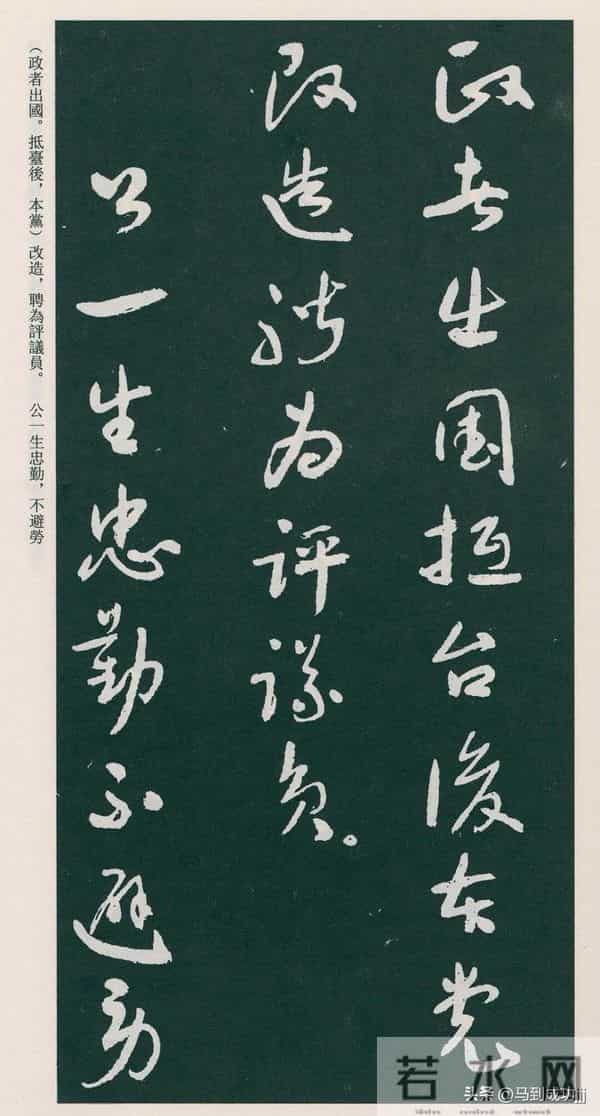 政者出国抵台後本党
改造聘为评议员。
公一生忠勤不避劳
（政者出國。抵臺後，本黨）改造，聘為評議員。　公一生忠勤，不避勞
若水网
头条 @马到成功jjj